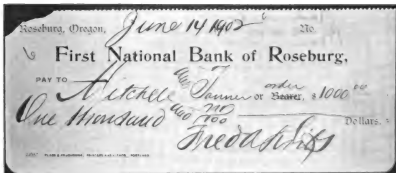 Roseburg, Oregon, June 14 1902 No.
First National Bank of Roseburg,
PAY TO Mitchell and Tanner or order Bearer, $1000.00
One thousand and no/100 Dollars.